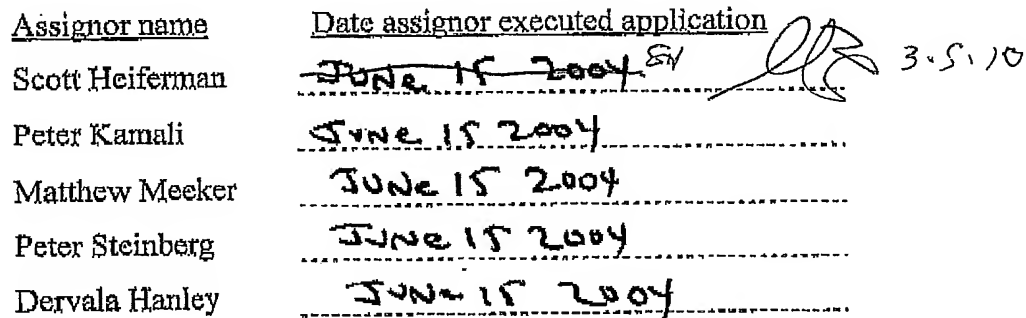 Assignor name Date assignor executed application
Scott Heiferman JUNE 15 2004 3.5.10
Peter Kamali JUNE 15 2004
Matthew Meeker JUNE 15 2004
Peter Steinberg JUNE 15 2004
Dervala Hanley JUNE 15 2004